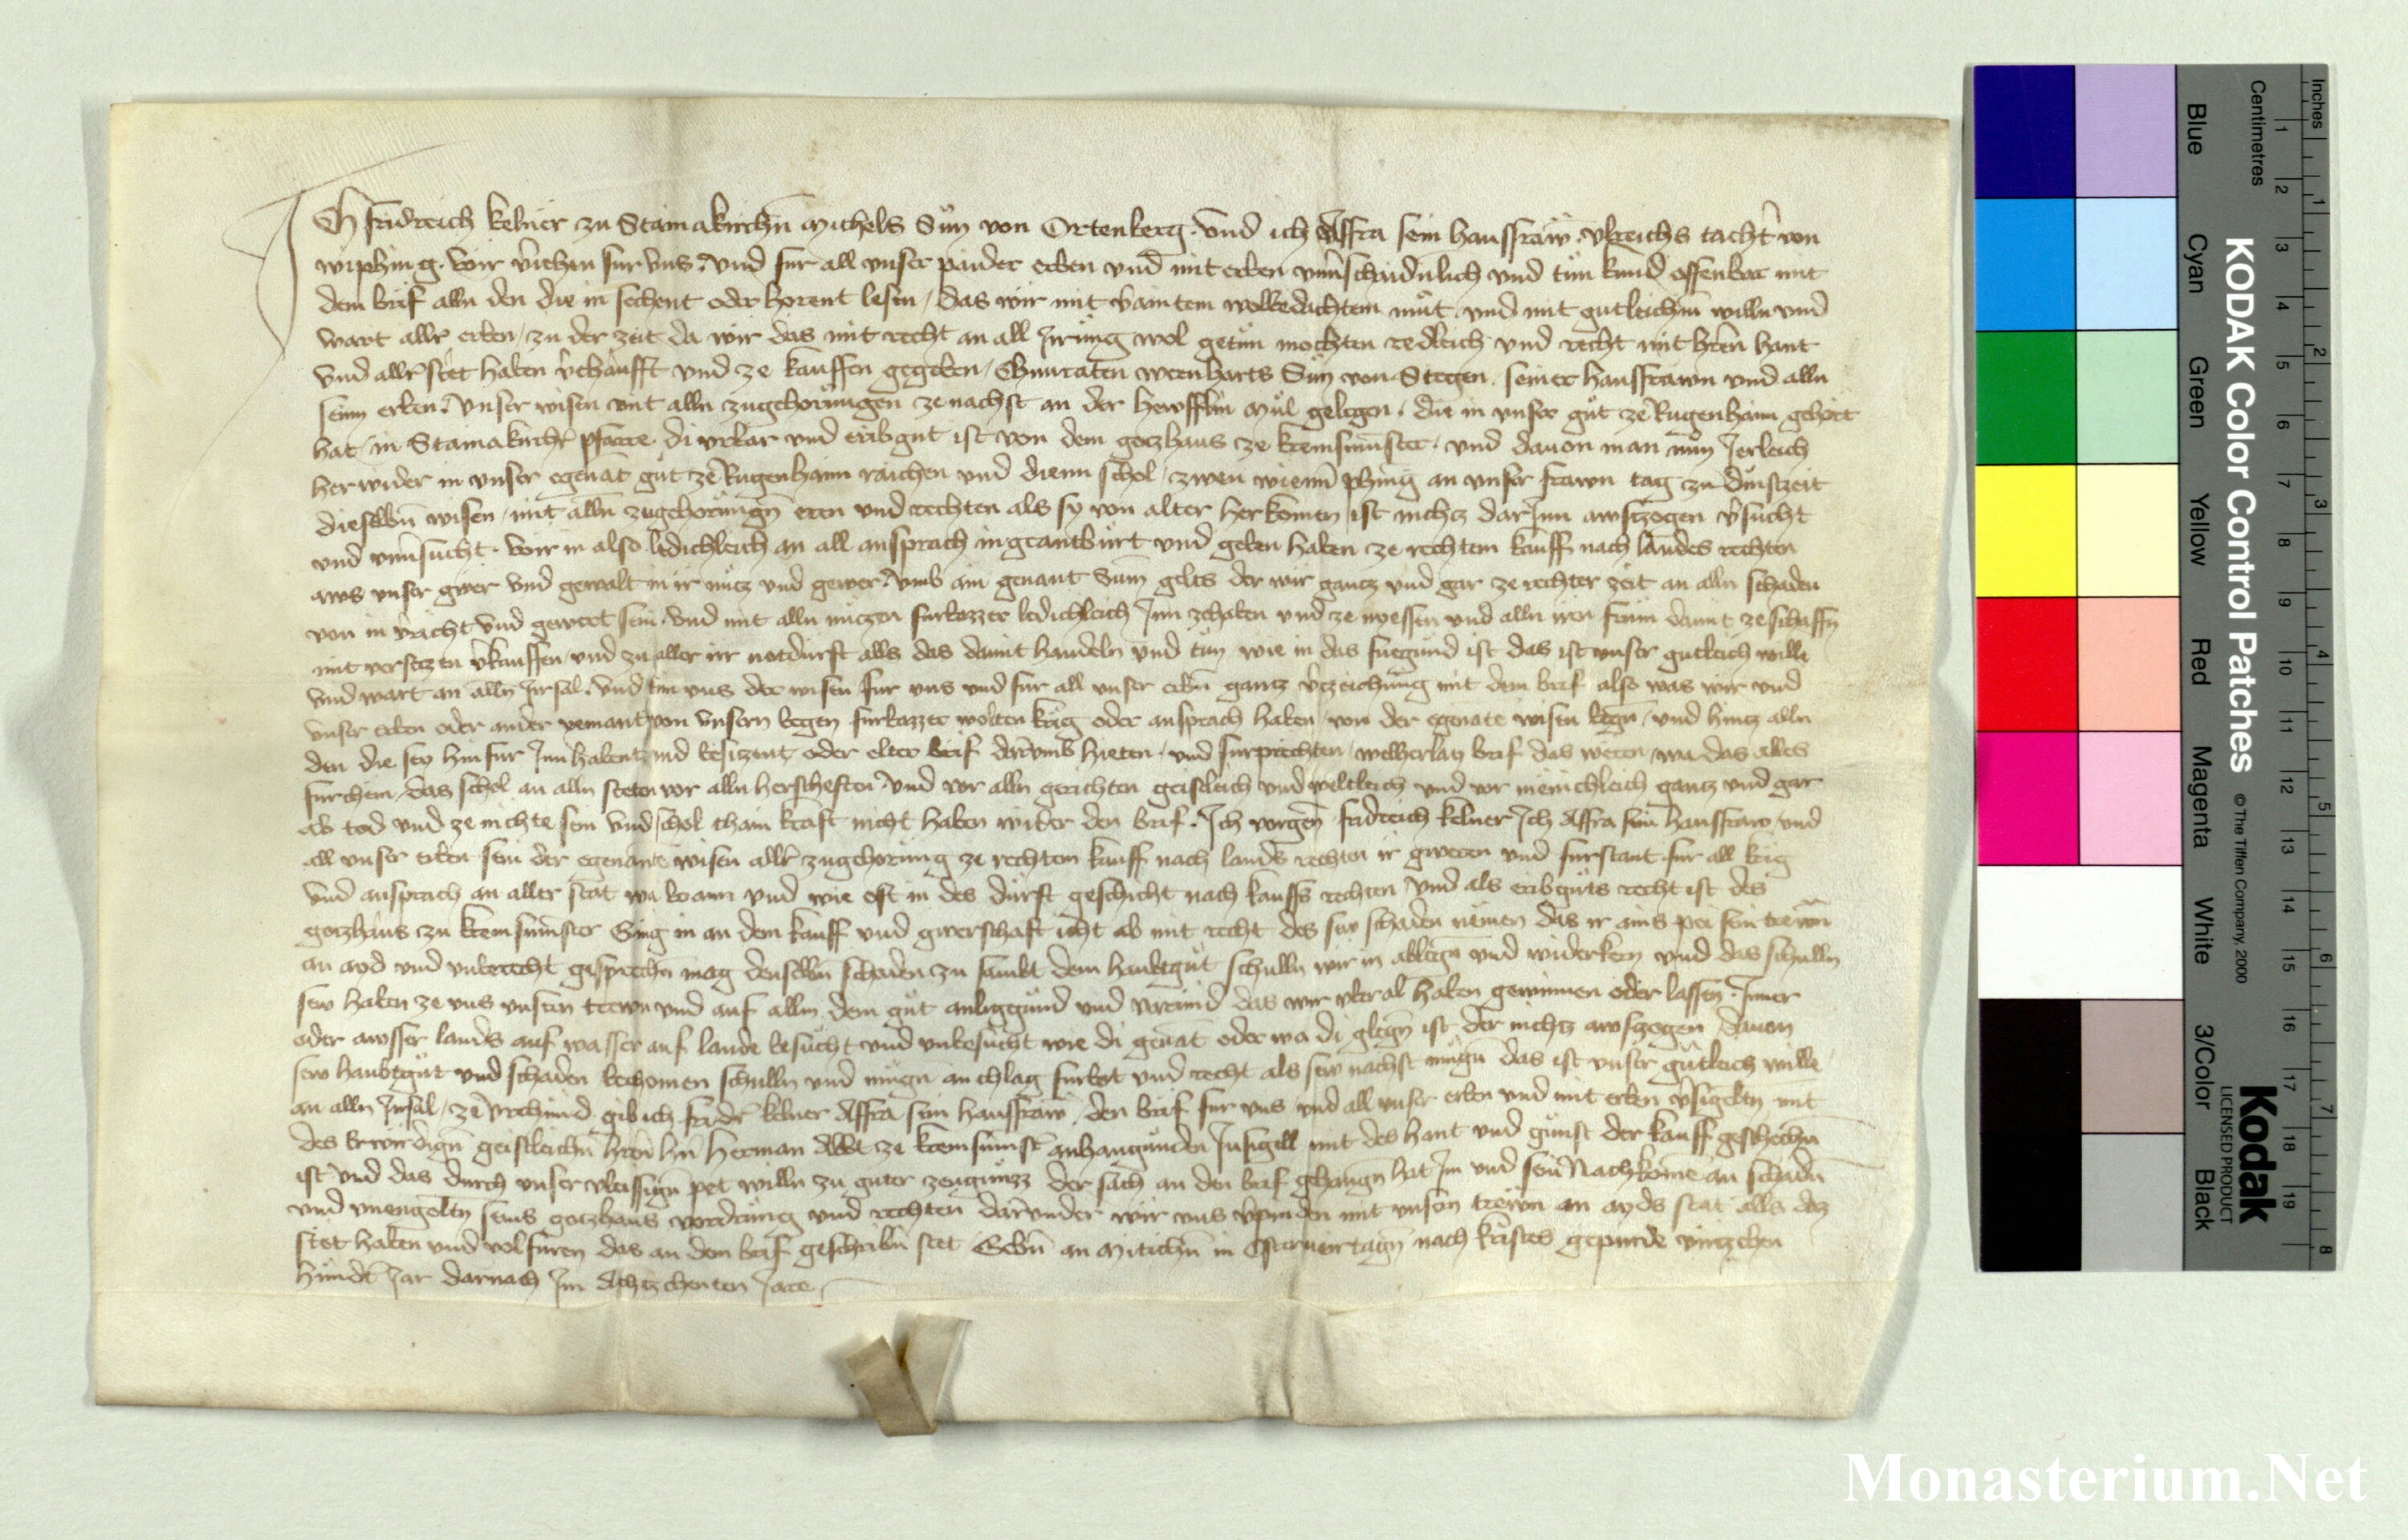 Ich fridreich kelner zu Stainakirchn̄ Michels Sun von Ortenberg. vnd ich Affra sein hausfraw. vlreichs tacht̄ von
wiphing. wir v̄iehen fur vns. vnd fur all vnser paider erben vnd mit erben vnūschaidnlich vnd tun kund offenbar mit
dem brif alln den die in sechent oder horent lesen / das wir mit v̄aintem wolbedachtem mut vnd mit gutleichm̄ willn vnd
wart allr̄ erben / zu der zeit da wir das mit recht an all Irrung wol getun mochten redleich vnd recht mit hren̄ hant
vnd allr̄ stet haben v̄chaufft vnd ze kauffen gegeben / Chunraten wernharts Sun von Stegen. seiner hausfrawn vnd alln
seinn erben. vnser wisen mit alln zugehorungen ze nachst an der Mul gelegen. die in vnser gut ze Rugenhaim gehort
hat / in Stainakirchr̄ pfarre. di vrbar vnd eribgut ist von dem gotzhaus ze kremsmunster. vnd dauon man nun Jerleich
herwider in vnser egenāt gut ze Rugenhaim raichen vnd dienn schol / zwen wienn̄ phnig an vnser frawn tag zu dinstzeit
dieselbn̄ wisen / mit alln̄ zugehorungn̄ eren vnd rechten als sy von alter her komen ist nichtz darInn awsgzogen v̄sucht
vnd vnūsucht. wir in also ledichleich an all ansprach ingeantburt vnd geben haben ze rechtem kauff nach landes rechten
aws vnser gwer vnd gewalt in ir nutz vnd gewer. vmb ain genant Sum gelts der wir gantz vnd gar ze rechter zeit an alln schaden
von in v̄richt vnd gewert sein. vnd mit alln nutzen furbazzer ledichleich Inn zehaben vnd ze niessen vnd alln iren frum damit ze schaffn̄
mit versetzen v̄kauffen / vnd zu aller irr notdurft alls das damit handeln vnd tun wie in das fuegund ist das ist vnser gutleich wille
vnd wart an alln Irrsal. vnd tun vns der wisen fur vns vnd fur all vnser erbn̄ gantz v̄tzeichung mit dem brif also was wir vnd
vnser erben oder ander yemant von vnsern wegen furbazzer wolten krig oder ansprach haben / von der egenate wisen wegn̄ / vnd hintz alln
den die sew hinfur Inn habent vnd besizent / oder elter brif darvmb hieten. vnd furprechten / welherlay brif das weren / wa das alles
furchem / das schol an alln steten vor alln herscheften vnd vor alln gerichten geistleich vnd weltleich vnd vor menichleich gantz vnd gar
ab tod vnd ze nichte sein vnd schol chain kraft nicht haben wider den brif. Ich vorgen̄ fridreich kelner Ich Affra sein hausfraw / vnd
all vnser erben sein der egenante wisen allr̄ zugehorung ze rechtem kauff nach lands rechten ir gweren vnd furstant fur all krig
vnd ansprach an aller stat wa wann vnd wie oft in des durft geschicht nach kauffs rechten vnd als eribguts recht ist des
gotzhaus zu kremsmunster Ging in an dem kauff vnd gwerschaft icht ab mit recht des sew schaden nemen das ir ains pei sein trewn
an ayd vnd vnberecht gesprechn̄ mag denselbn̄ schaden zu sambt dem haubtgut schulln wir in ablegn̄ vnd widerkern vnd das schulln
sew haben ze vns vnsern trewn vnd auf allm dem gut anligund vnd varund das wir vberal haben gewinnen oder lassen. Inner
oder awsser lands auf wasser auf lande besucht vnd vnbesucht wie di genāt oder wa di glegn̄ ist der nichtz awsgzogen / dauon
sew haubtgut vnd schaden bechomen schulln vnd mugn an chlag furbot vnd recht als sew nachst mugn̄ das ist vnser gutleich wille
an alln Irrsal / ze vrchund gib ich fridr̄ kelner Affra sein hausfraw. den brif fur vns vnd all vnser erben vnd mit erben v̄sigeltn mit
des Erwirdign̄ geistleichn̄ hren̄ hn̄ Herman Abbt ze kremsmunst̄ anhangunden Insigell mit des hant vnd gunst der kauff geschechn̄
ist vnd das durch vnser vleissign̄ pet willn zu guter zeugnuzz der sach an den brif gehangn̄ hat Im vnd sein Nachkome an schadn̄
vnd vnengoltn seins gotzhaus vordrung vnd rechten darunder wir vns v̄pinden mit vnsern trewn an ayds stat alls daz
stet haben vnd volfuren das an dem brif geschribn̄ stet Gebn̄ an Mitichn̄ in Osterueirtagn̄ nach kristes gepurde virtzehen
hundt̄ Jar darnach Im Achtzehenten Jare
KODAK Color Control Patches
© The Tiffen Company, 2000
Kodak
LICENSED PRODUCT
Inches
Centimetres
Blue
Cyan
Green
Yellow
Red
Magenta
White
3/Color
Black
1 2 3 4 5 6 7 8 9 10 11 12 13 14 15 16 17 18 19
1 2 3 4 5 6 7 8
Monasterium.Net